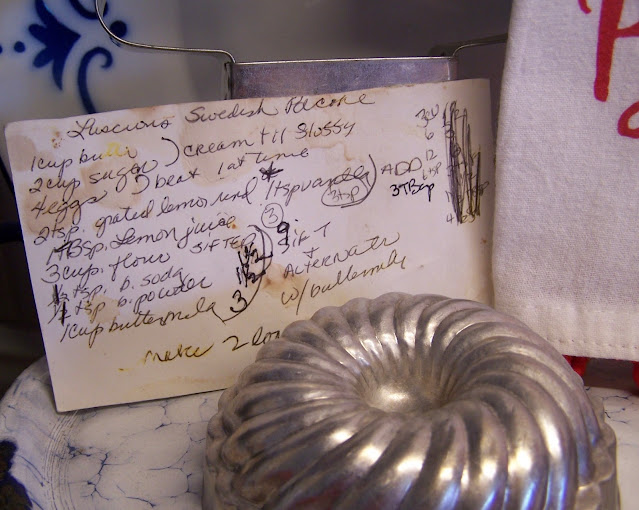 Luscious Swedish
1 cup butter ) cream til glossy
2 cup sugar
4 eggs ) beat 1 at time
2 tsp. grated lemon rind 1 tsp vanilla 3 tsp ADD
1 TBSp. Lemon juice 3 3TBsp
3 cup. flour SIFTED Sift
½ tsp. b. soda 1½ +
1 tsp b. powder Alternate
1 cup buttermilk 3 w/ buttermilk
make 2